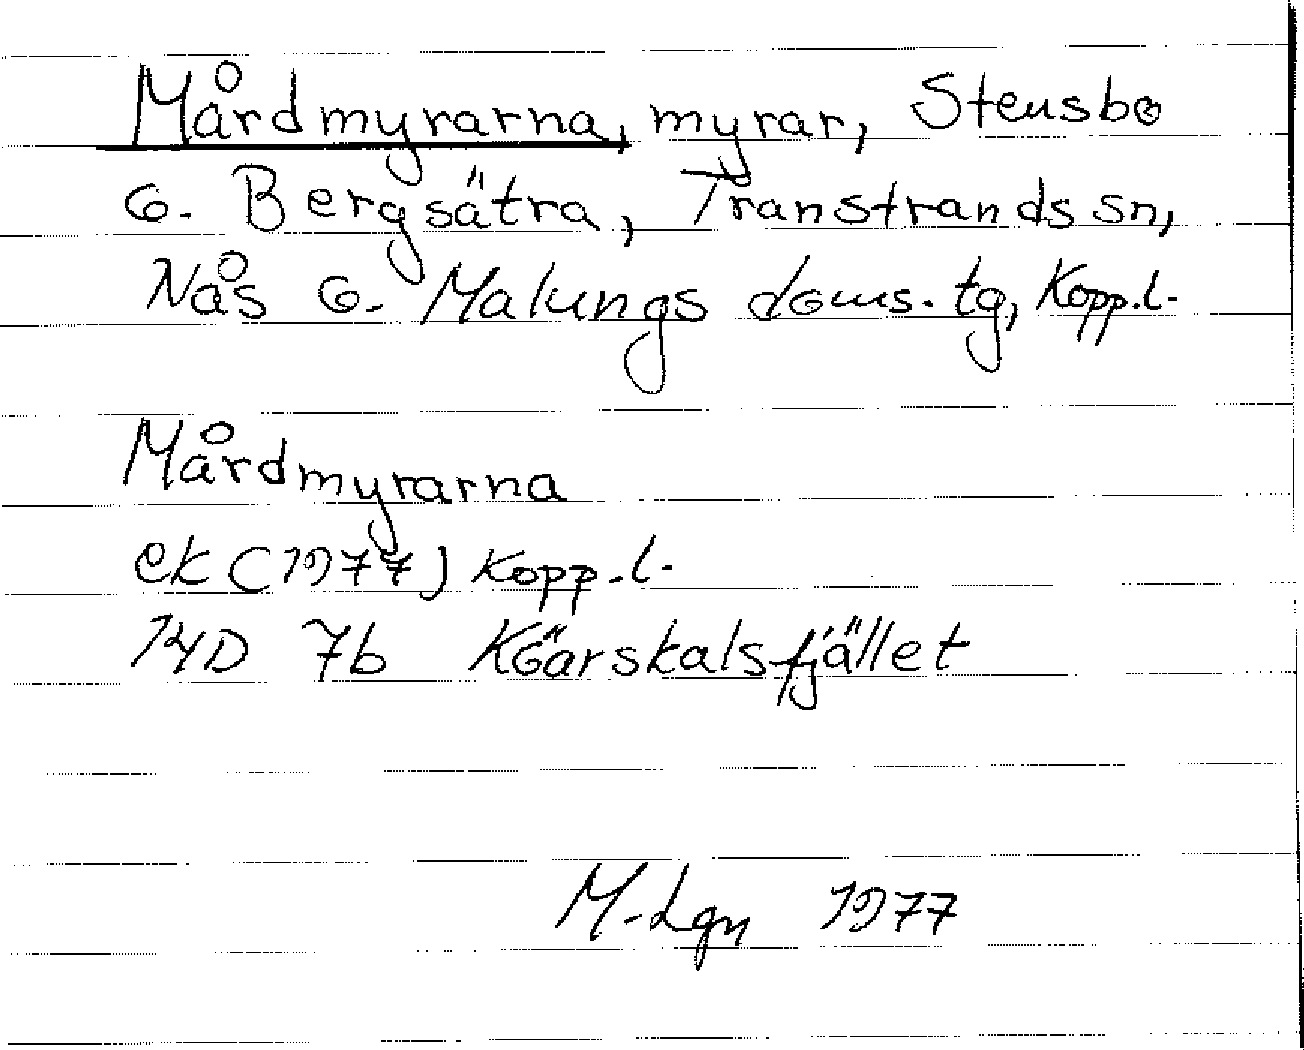 Mårdmyrarna, myrar, Stensbo
o. Bergsätra, Transtrands sn,
Nås o. Malungs doms. tg, Kopp.l.
Mårdmyrarna
ek (1977) Kopp.l.
14D 7b Köarskalsfjället
M-Lgn 1977